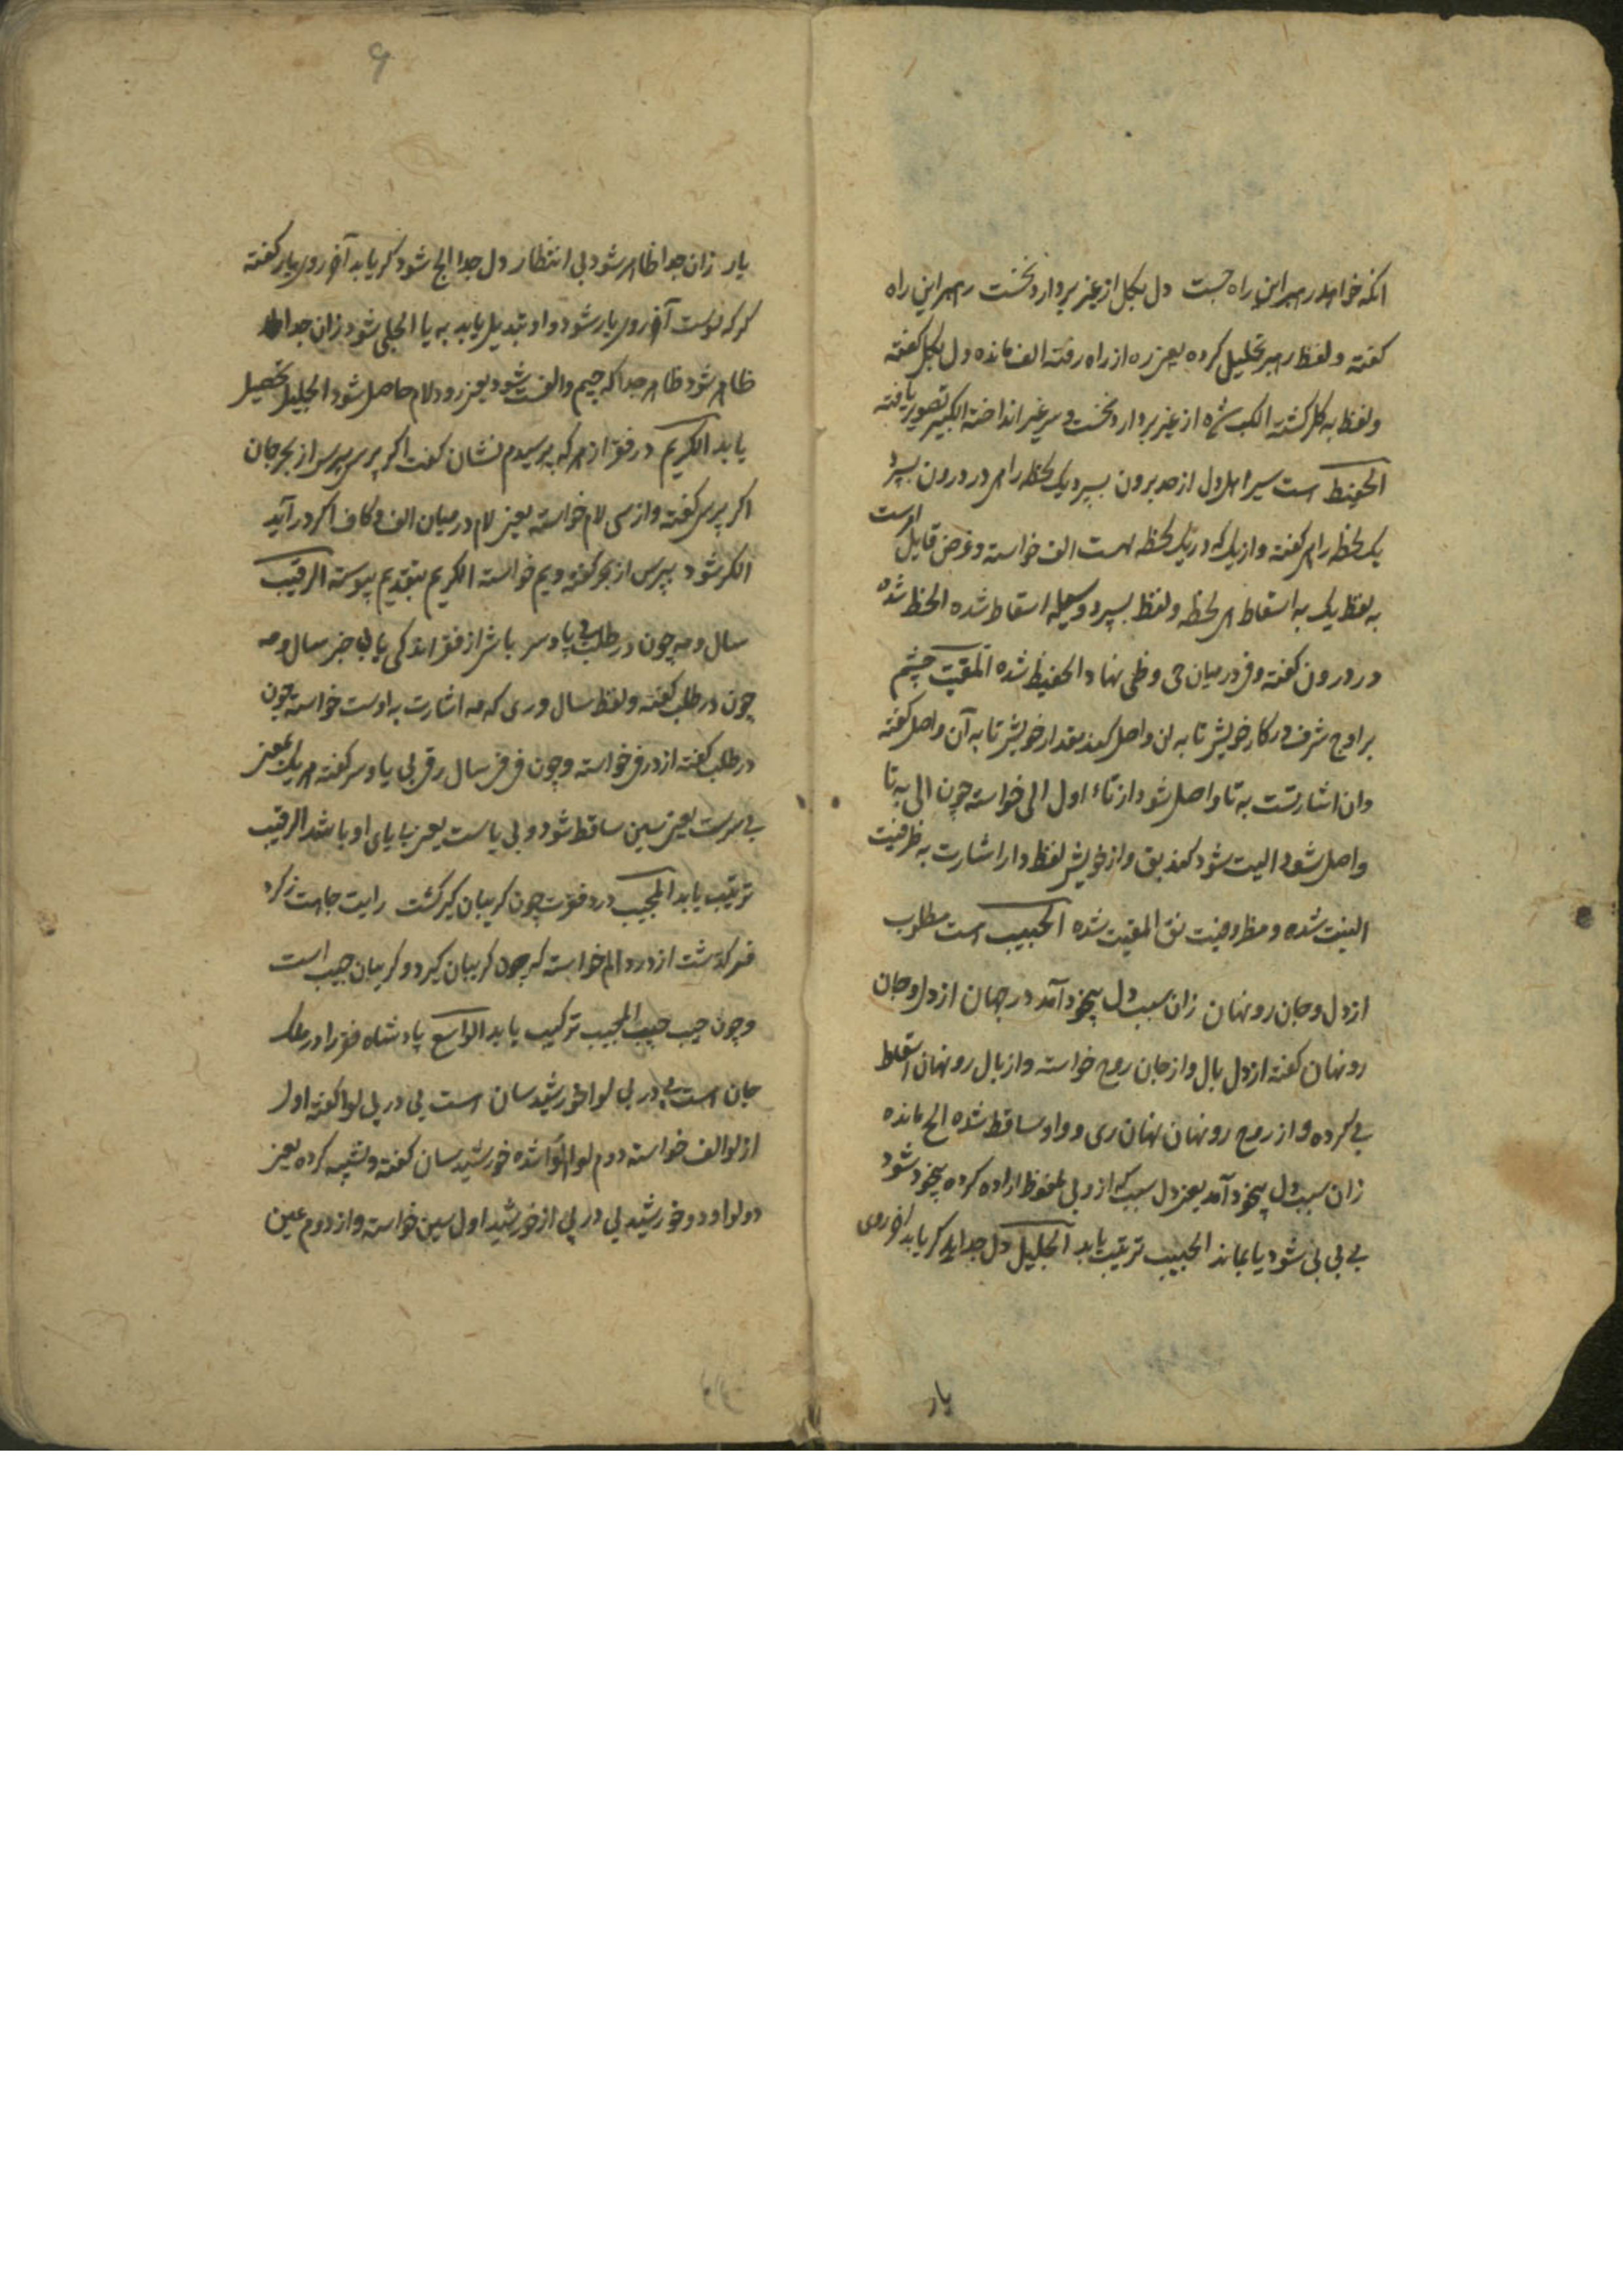 انکه خواهد رهبر این راه جست دل بکل از غیر بردارد نخست رهبر این راه
کفته و لفظ رهبر تحلیل کرده یعنی ره از راه رفته الف مانده دل بکل کفته
و لفظ به کل کشته الکب شده از غیر بردارد نخست و سر غیر انداخته الکبیر تصویر یافته
الحفیظ است سیر اهل دل از حد برون بسپرد یک لحظه راهی در درون بسپرد
یک لحظه راهی کفته و از یک که در یک لحظه است الف خواسته و غرض قایل است
به لفظ یک به اسقاط لحظه و لفظ بسپرد وسیله اسقاط شده الحظ شده
در درون کفته و فی در میان حی و ظی نهاد الحفیظ شده المقیت چشم
بر اوج شرف در کار خویش تا به ان واصل کند مقدار خویش تا به آن واصل کفته
و ان اشارتست به تا واصل شود از تاء اول الی خواسته چون الی به تا
واصل شود الیت شود کمند بق و از خویش لفظ دار اشارت به ظرفیت
الیت شده و مظروفیت مق المقیت شده الحبیب است مطلوب
از دل و جان رو نهان زان سبب دل بیخود آمد در جهان از دل و جان
رو نهان کفته از دل بال و از جان روح خواسته و از بال رو نهان اسقاط
بی کرده و از روح رو نهان نهان ری و واو ساقط شده الح مانده
زان سبب دل بیخود آمد یعنی دل سبب که از و بی ملفوظ اراده کرده بیخود شود
بی بی بی شود یا بماند الحبیب ترتیب یابد الجلیل دل جداید کر یابد آخر روی
یار
یار زان جدا ظاهر شود بی انتظار دل جدا الج شود کر یابد آخر روی یار کفته
کر که توست آخر روی یار شود و او تبدیل یابد به یا الجلی شود زان جدا
ظاهر شود ظاهر جدا که جیم و الفست شود یعنی رود لام حاصل شود الجلیل تحصیل
یابد الکریم در فقر از هر که پرسیدم نشان کفت اکر پرسی بپرس از بحر جان
اکر پرسی کفته و از سی لام خواسته یعنی لام در میان الف و کاف اکر در آید
الکر شود بپرس از بحر کفته و یم خواسته الکریم بتقدیم پیوسته الرقیب
سال و مه چون در طلب بی پا و سر باشی از فقر اندکی یابی خبر سال و مه
چون در طلب کفته و لفظ سال و ری که مه اشارت به اوست خواسته چون
در طلب کفته از در فی خواسته و چون فی فی سال رق بی پا و سر کفته هر یک یعنی
بی سرست یعنی سین ساقط شود و بی پا ست یعنی با پای او باشد الرقیب
ترتیب یابد المجیب درد فقرت چون کریبان کیر کشت رایت جاهت ز کرد
فقر کذشت از درد الم خواسته که چون کریبان کیرد و کریبان جیب است
و چون جیب جیب المجیب ترکیب یابد الواسع پادشاه فقر را در ملک
جان است پی در پی لوا خورشید سان است پی در پی لوا کفته اول
از لوا الف خواسته دوم لوا الوا شده خورشید سان کفته و تشبیه کرده یعنی
دو لوا و دو خورشید پی در پی از خورشید اول سین خواسته و از دوم عین